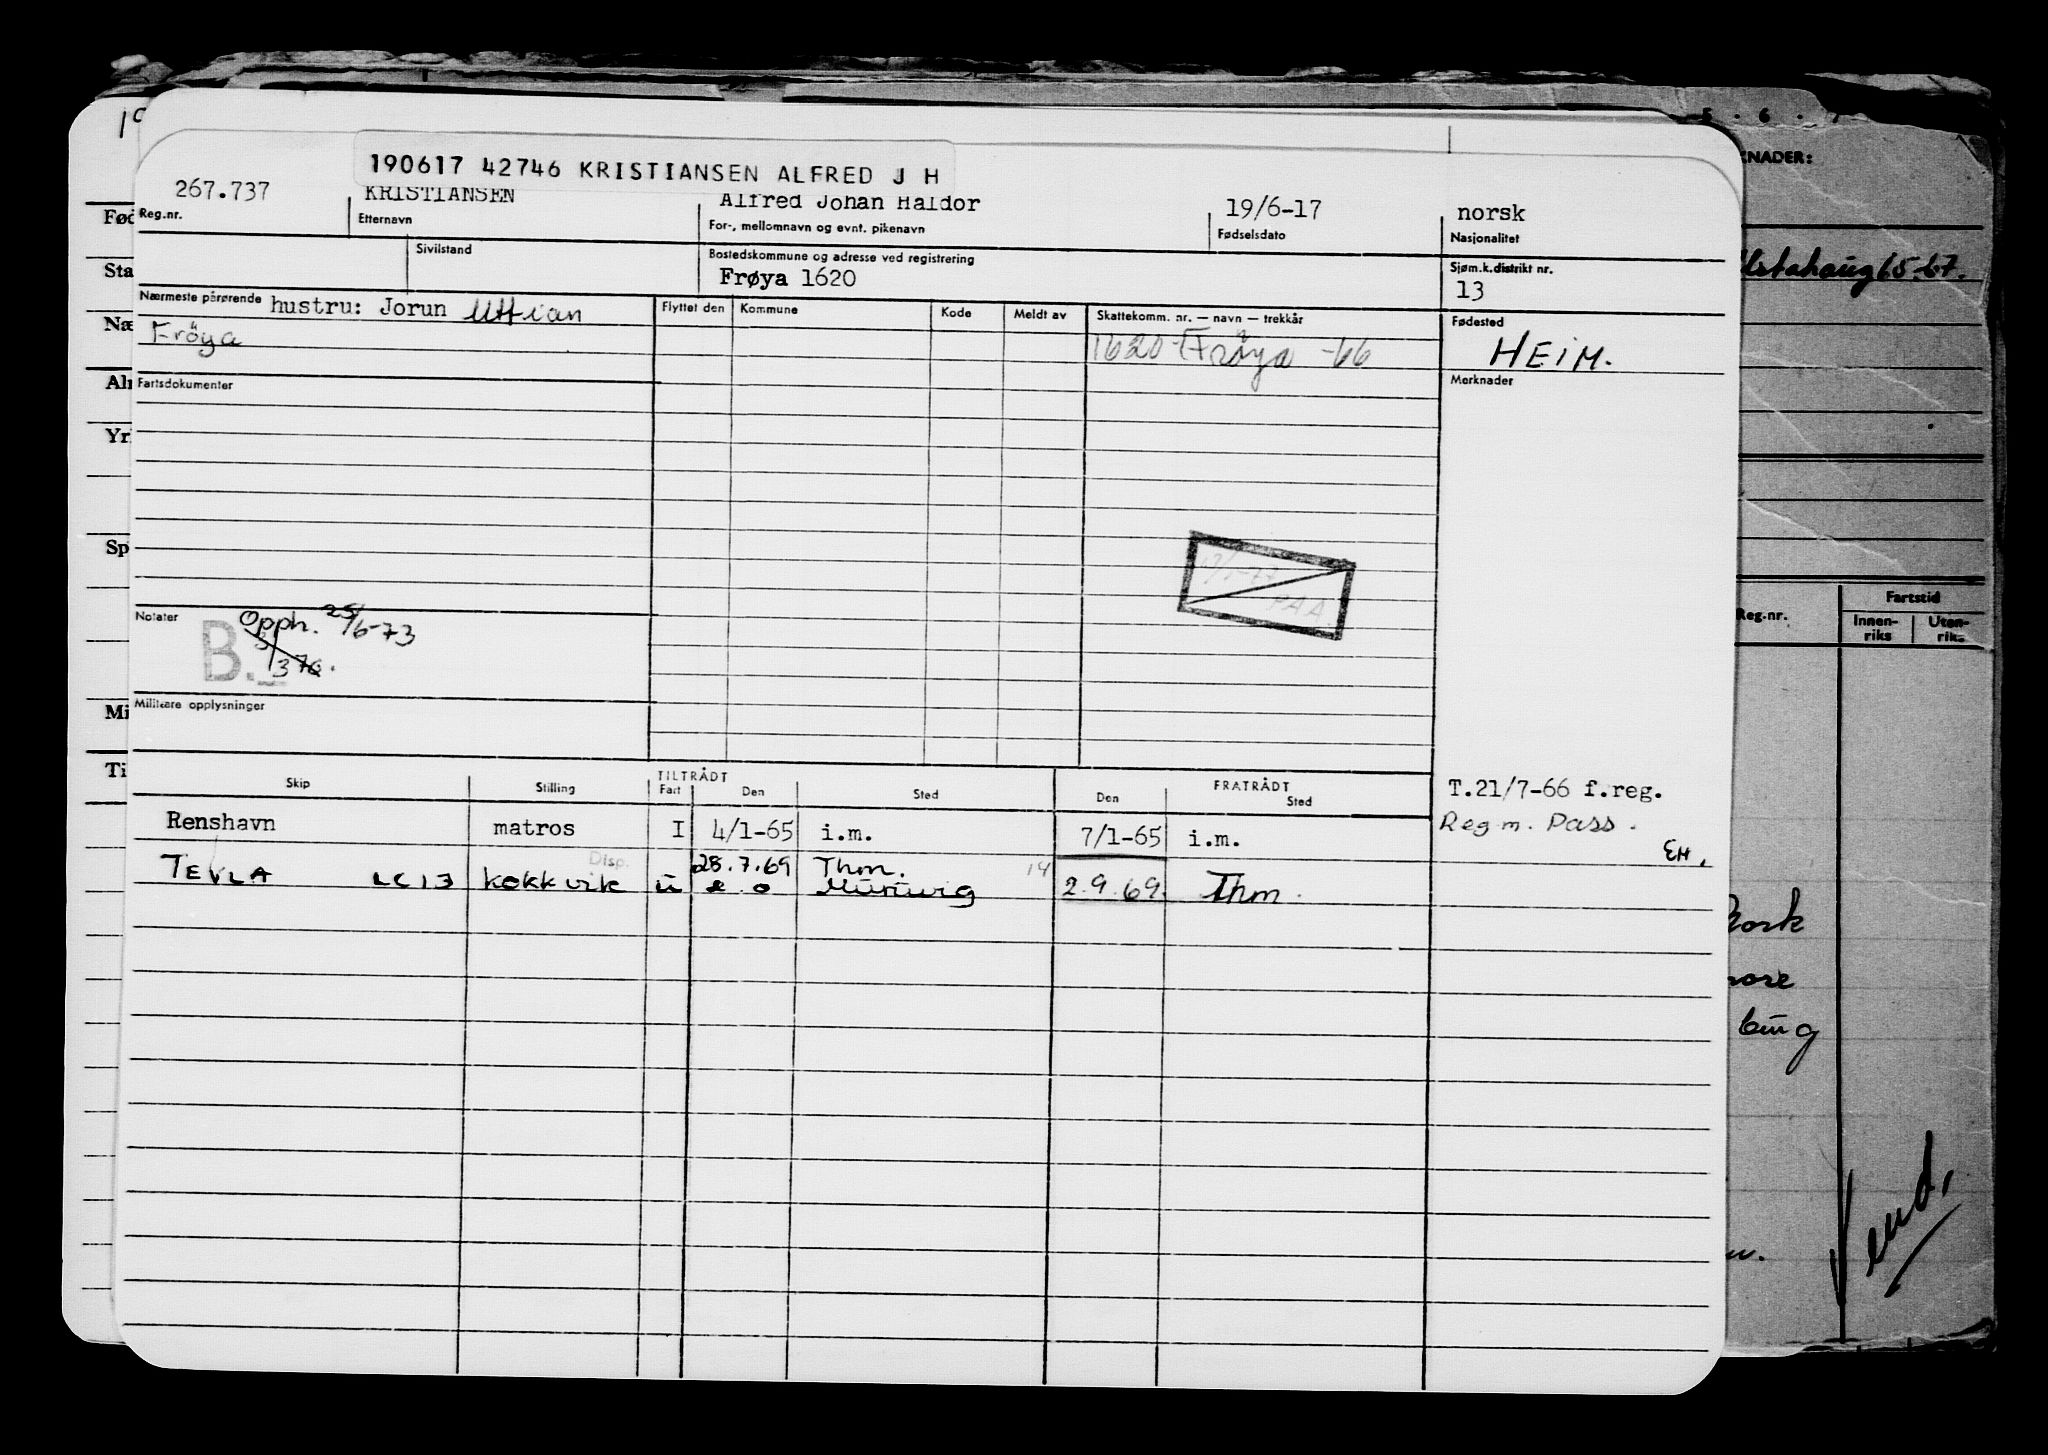 190617 42746 KRISTIANSEN ALFRED J H
267.737 KRISTIANSEN Alfred Johan Haldor 19/6-17 norsk
Reg.nr. Etternavn For-, mellomnavn og evnt. pikenavn Fødselsdato Nasjonalitet
Sivilstand Bostedskommune og adresse ved registrering Sjøm.k.distrikt nr.
Frøya 1620 13
Nærmeste pårørende hustru: Jorun Uttian Flyttet den Kommune Kode Meldt av Skattekomm. nr. — navn — trekkår Fødested
Fröya 1620 Frøya -66 HEIM.
Fartsdokumenter Merknader
Notater Opph. 25/6-73
B.
Militære opplysninger
Skip Stilling TILTRÅDT Fart Den Sted FRATRÅDT Den Sted
T.21/7-66 f.reg.
Renshavn matros I 4/1-65 i.m. 7/1-65 i.m.
Reg m. Pass.
EH.
Disp. 28.7.69 Thm. 14
TEVLA LCI3 kokkvik u 2.9.69. Thm.
Fød
Sta
Næ
Alm
Yr
Sp
Mi
Ti
5 . 6 . 7
KNADER:
Alstahaug 65-67.
Reg.nr. Fartstid
Innen-riks Uten-riks
York
more
burg
Vend.